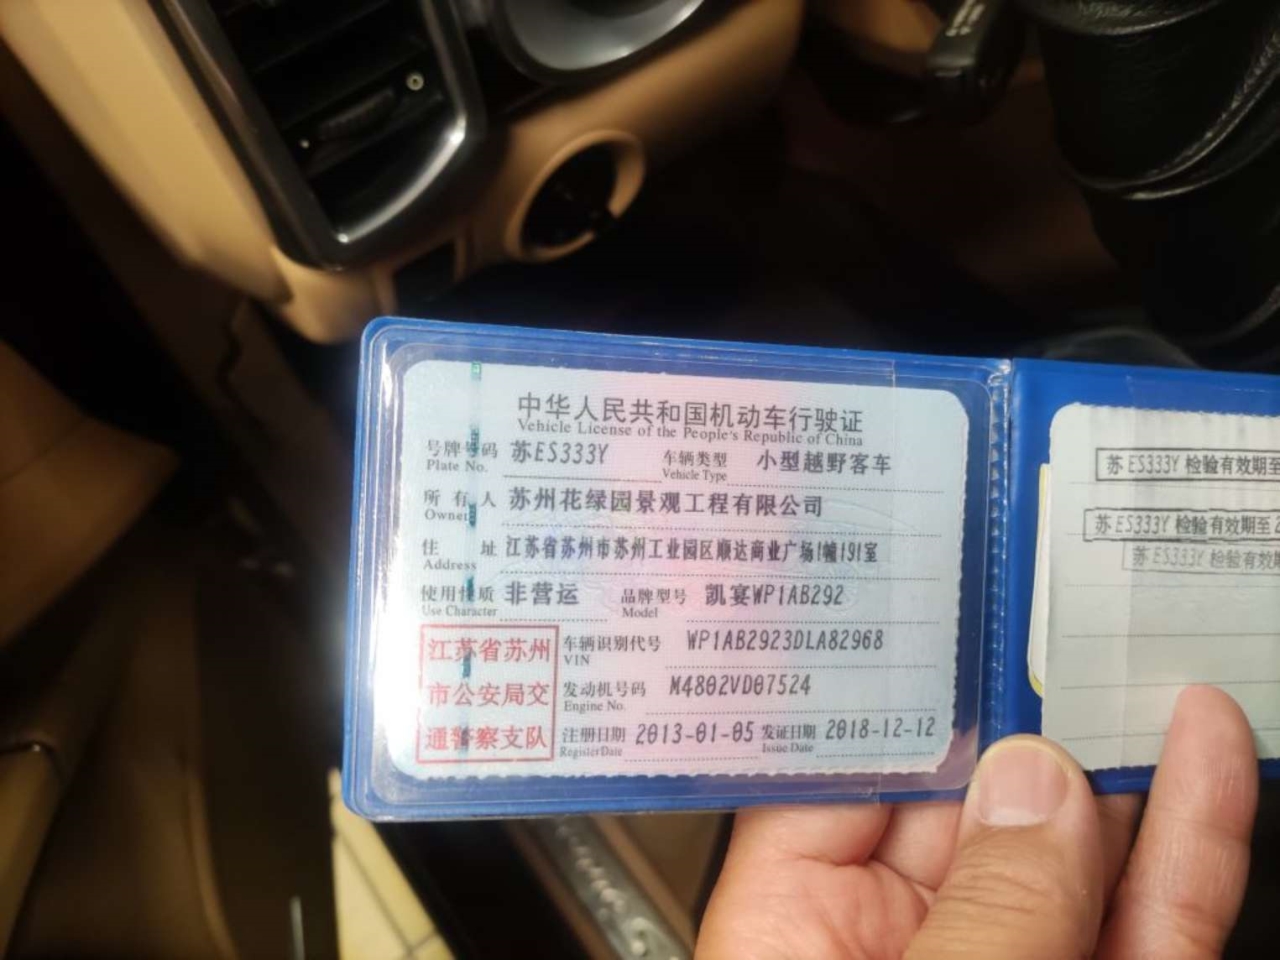 中华人民共和国机动车行驶证
Vehicle License of the People's Republic of China
号牌号码 苏ES333Y 车辆类型 小型越野客车
Plate No. Vehicle Type
所有人 苏州花绿园景观工程有限公司
Owner
住址 江苏省苏州市苏州工业园区顺达商业广场1幢191室
Address
使用性质 非营运 品牌型号 凯宴WP1AB292
Use Character Model
江苏省苏州
市公安局交
通警察支队
车辆识别代号 WP1AB2923DLA82968
VIN
发动机号码 M4802VD07524
Engine No.
注册日期 2013-01-05 发证日期 2018-12-12
Register Date Issue Date
苏ES333Y检验有效期至
苏ES333Y检验有效期至
苏ES333Y检验有效